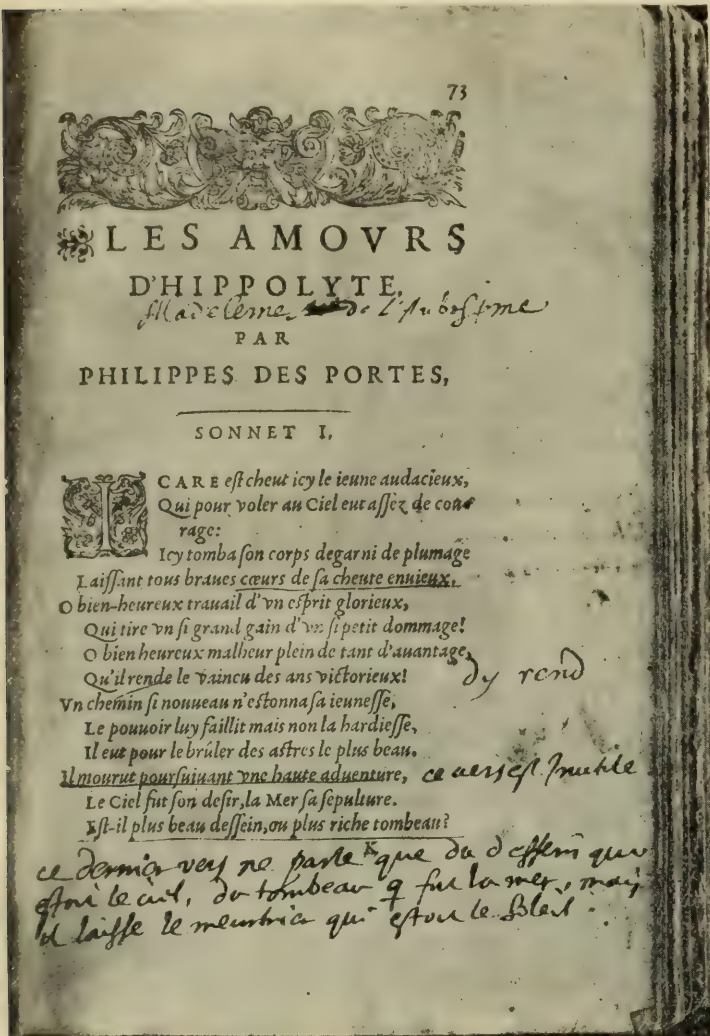 73
LES AMOVRS
D'HIPPOLYTE,
Madeleine de l'Aubespine
PAR
PHILIPPES DES PORTES,
SONNET I,
ICARE eſt cheut icy le ieune audacieux,
Qui pour voler au Ciel eut aſſez de cou-
rage:
Icy tomba ſon corps degarni de plumage
Laiſſant tous braues cœurs de ſa cheute enuieux.
O bien-heureux trauail d'vn eſprit glorieux,
Qui tire vn ſi grand gain d'vn ſi petit dommage!
O bien heureux malheur plein de tant d'auantage,
Qu'il rende le vaincu des ans victorieux! dy rend
Vn chemin ſi nouueau n'eſtonna ſa ieuneſſe,
Le pouuoir luy faillit mais non la hardieſſe,
Il eut pour le brûler des aſtres le plus beau.
Il mourut pourſuiuant vne haute aduenture, ce vers eſt Inutile
Le Ciel fut ſon deſir, la Mer ſa ſepulture.
Eſt-il plus beau deſſein, ou plus riche tombeau?
ce dernier vers ne parle que du deſſein qui
eſtoit le ciel, du tombeau q fut la mer, mais
il laiſſe le meurtrier qui eſtoit le Soleil